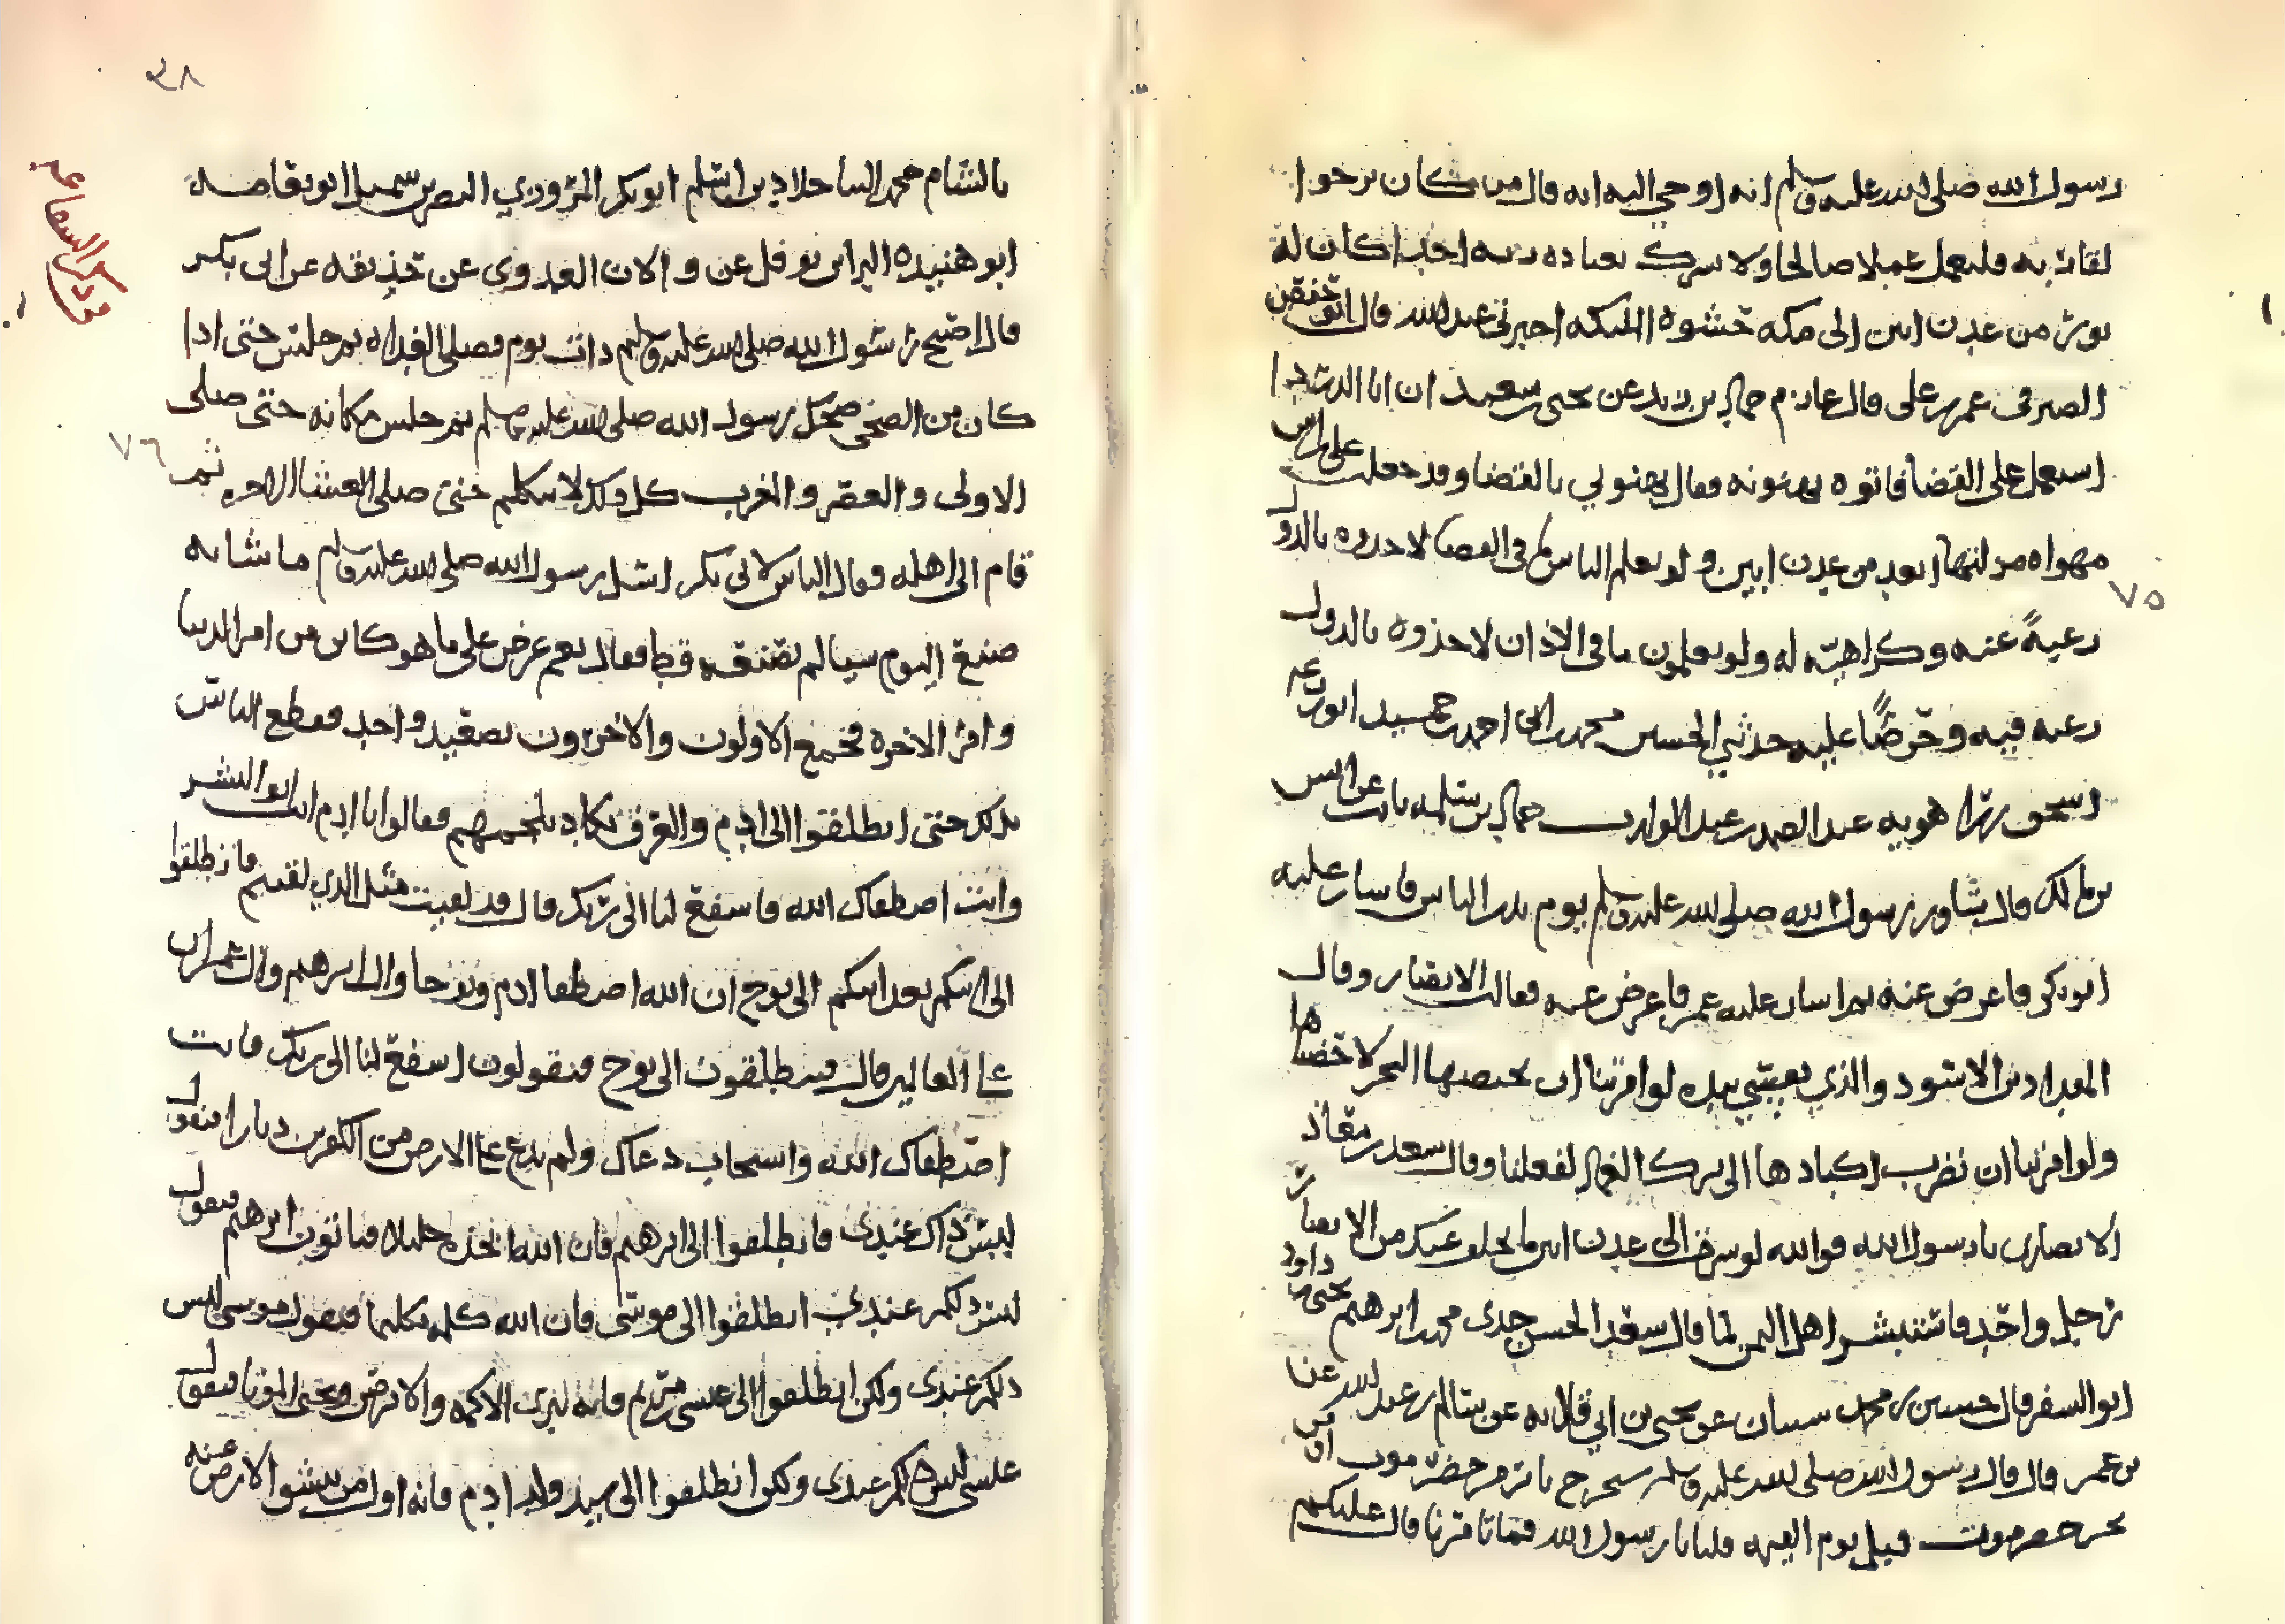 رسول الله صلى الله عليه وسلم انه اوحي اليه انه قال من كان يرجوا
لقا ربه فليعمل عملا صالحا ولا يشرك بعباده ربه احدا كان له
نورٌ من عدن ابين الى مكه حشوه الملئكه اخبرني عبدالله قال ابو حفص
الصيرفي عمر بن علي قال عارم حماد بن زيد عن يحيى بن سعيد ان ابا الدرداء
استعمل على القضا فاتوه يهنونه فقال تهنوني بالقضا وقد جعلت على راس
مهواه مزلتها ابعد من عدن ابين ولو يعلم الناس ما في القضا لاخذوه بالدول
رغبةً عنه وكراهية له ولو يعلمون ما في الاذان لاخذوه بالدول
رغبه فيه وحرصًا عليه حدثني الحسين محمد احمد حميد ابو زرعه
اسحق بن راهويه عبد الصمد بن عبد الوارث حماد بن سلمه ثابت عن انس
بن مالك قال شاور رسول الله صلى الله عليه وسلم يوم بدر الناس فاشار عليه
ابو بكر فاعرض عنه ثم اشار عليه عمر فاعرض عنه فقالت الانصار وقال
المقداد بن الاسود والذي نفسي بيده لو امرتنا ان نخيضها البحر لاخضناها
ولو امرتنا ان نضرب اكبادها الى برك الغماد لفعلنا وقال سعد بن معاذ
الانصاري يا رسول الله فوالله لو سرت الى عدن ابين ما تخلف عنك من الانصار
رجل واحد فاستبشر اهل اليمن لما قال سعد الحسن جدي محمد ابرهيم يحيى بن داود
ابو السفر قال حسين بن محمد شيبان عن يحيى بن ابي قلابه عن سالم بن عبد الله عن
بن عمر قال قال رسول الله صلى الله عليه وسلم ستخرج نار من حضرموت او من
بحر حضرموت قبل يوم القيمه قلنا يا رسول الله فما تامرنا قال عليكم
٧٥
٢٨
بالشام محمد الساحلا دين اسلم ابو بكر المروزي النضر بن شميل ابو نعامه
ابو هنيده البراء بن نوفل عن والان العدوي عن حذيفه عن ابي بكر
قال اصبح رسول الله صلى الله عليه وسلم ذات يوم فصلى الغداه ثم جلس حتى اذا
كان من الضحى ضحك رسول الله صلى الله عليه وسلم ثم جلس مكانه حتى صلى
الاولى والعصر والمغرب كل ذلك لا يتكلم حتى صلى العشا الاخره ثم
قام الى اهله فقال الناس لابي بكر اسل رسول الله صلى الله عليه وسلم ما شانه
صنع اليوم شيا لم يصنعه قط فقال نعم عرض علي ما هو كائن من امر الدنيا
وامر الاخره فجمع الاولون والاخرون بصعيد واحد ففظع الناس
بذلك حتى انطلقوا الى ادم والعرق يكاد يلجمهم فقالوا يا ادم انت ابو البشر
وانت اصطفاك الله فاشفع لنا الى ربك قال قد لقيت مثل الذي لقيتم فانطلقوا
الى ابيكم بعد ابيكم الى نوح ان الله اصطفا ادم ونوحا وال ابرهيم وال عمران
على العالمين قال فينطلقون الى نوح فيقولون اشفع لنا الى ربك فانت
اصطفاك الله واستجاب دعاك ولم يدع على الارض من الكفرين ديارا فيقول
ليس ذاك عندي فانطلقوا الى ابرهيم فان الله اتخذه خليلا فياتون ابرهيم فيقول
ليس ذلكم عندي انطلقوا الى موسى فان الله كلمه تكليما فيقول موسى ليس
ذلكم عندي ولكن انطلقوا الى عيسى بن مريم فانه يبري الاكمه والابرص ويحيي الموتا فيقول
عيسى ليس ذلكم عندي ولكن انطلقوا الى سيد ولد ادم فانه اول من تنشق الارض عنه
من ذكر الشفاعه
٧٦